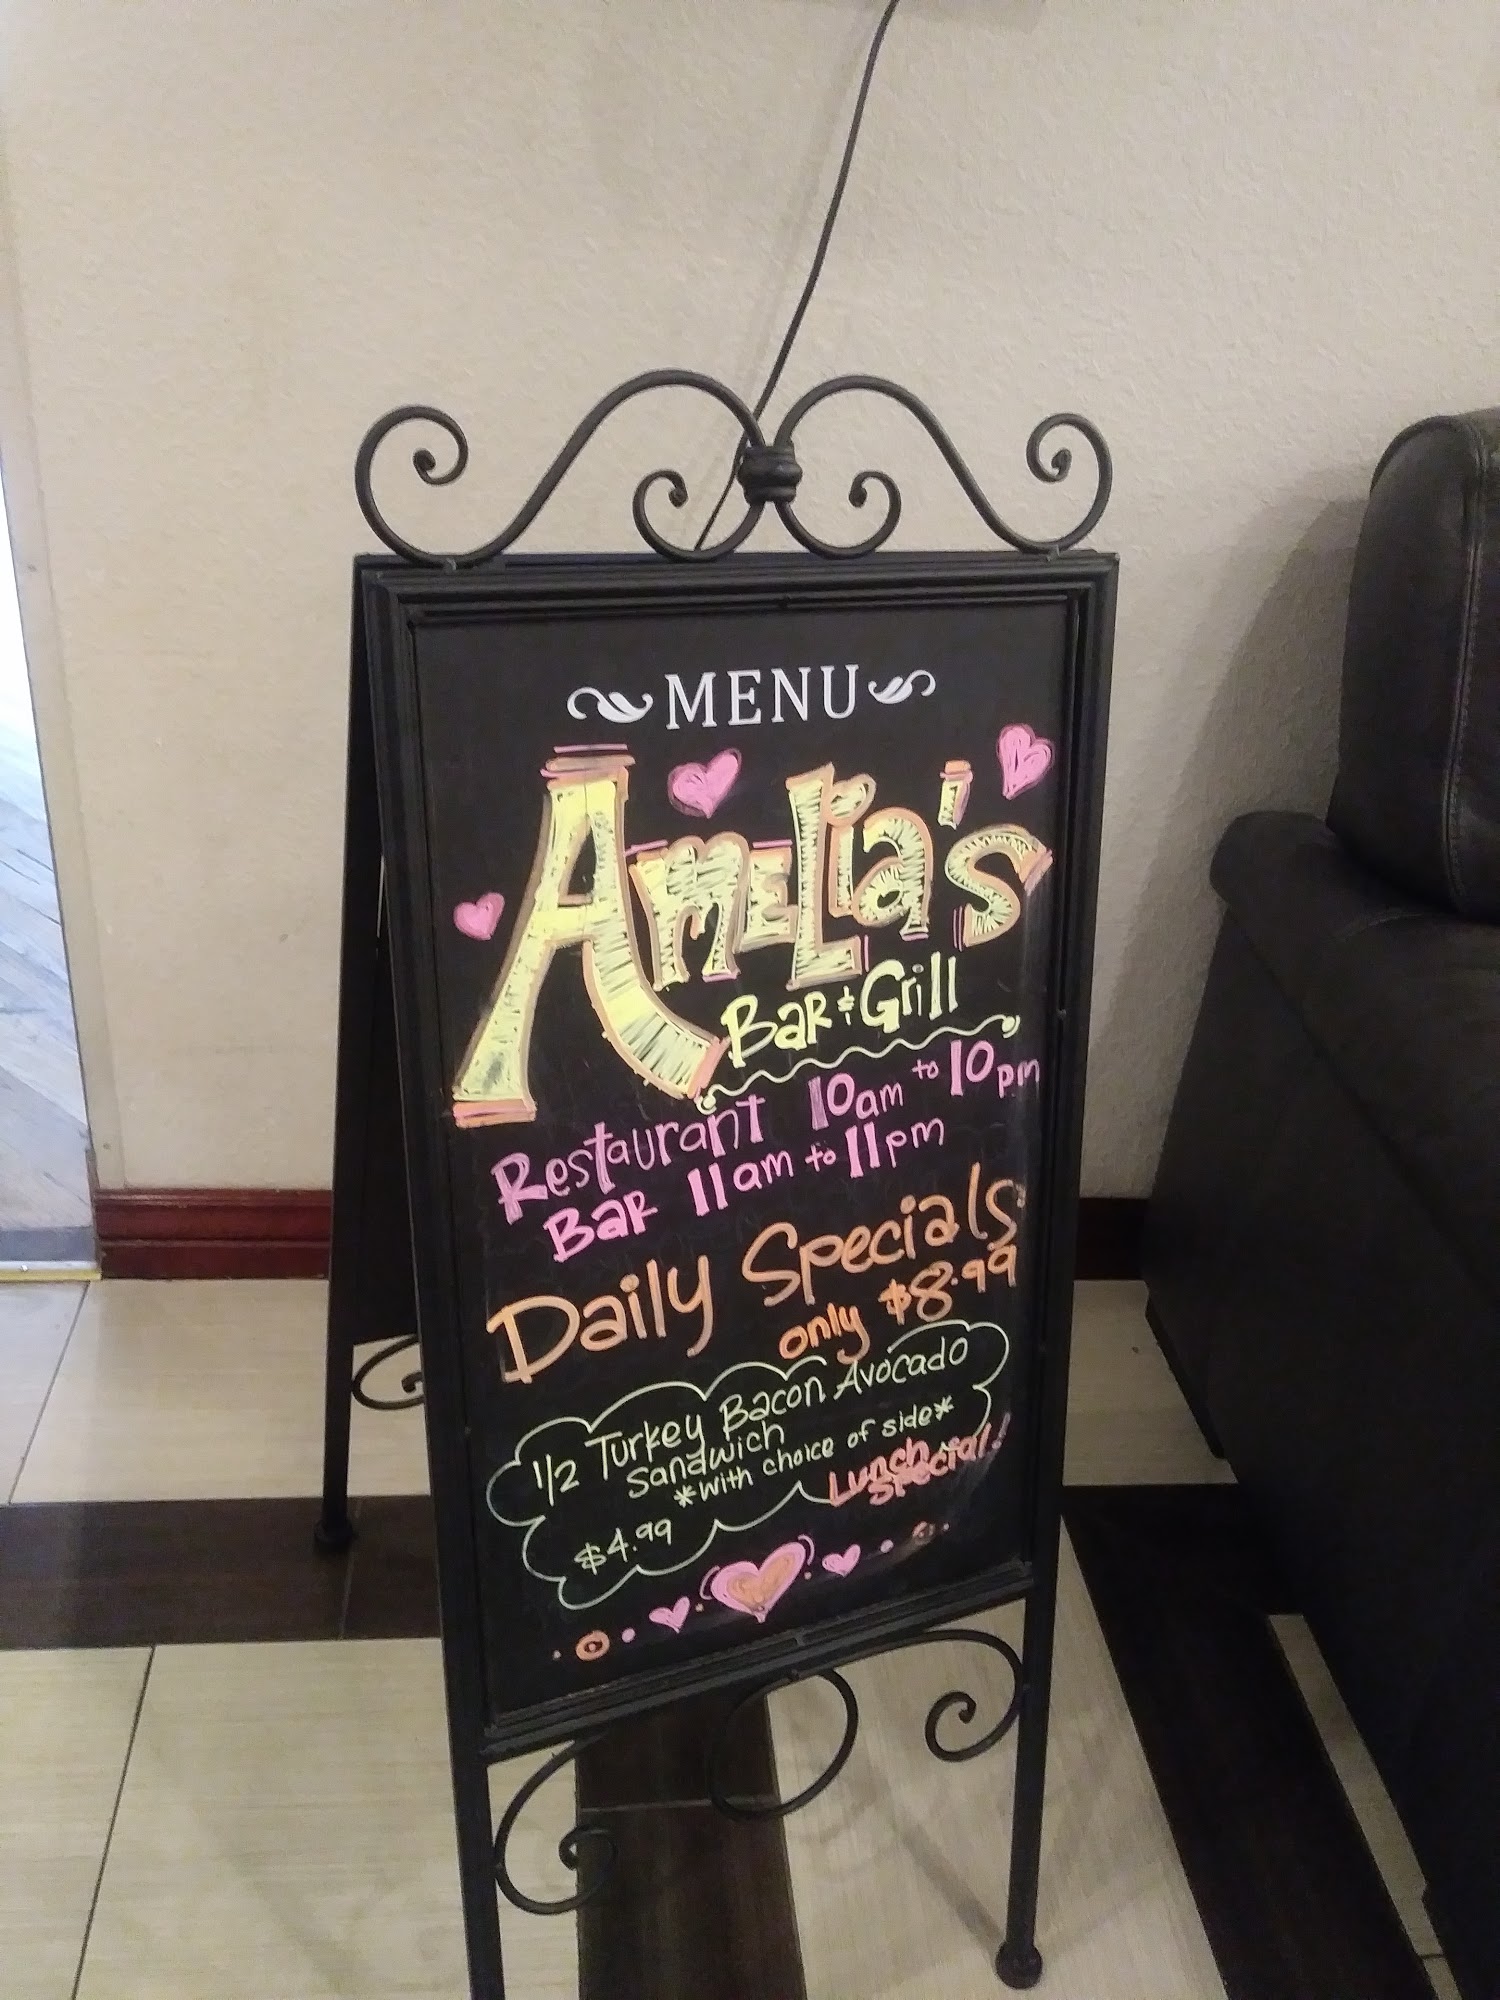 MENU
AmeLia's
Bar & Grill
Restaurant 10am to 10pm
Bar 11am to 11pm
Daily Specials
only $8.99
1/2 Turkey Bacon Avocado
Sandwich
*with choice of side*
Lunch
Special!
$4.99